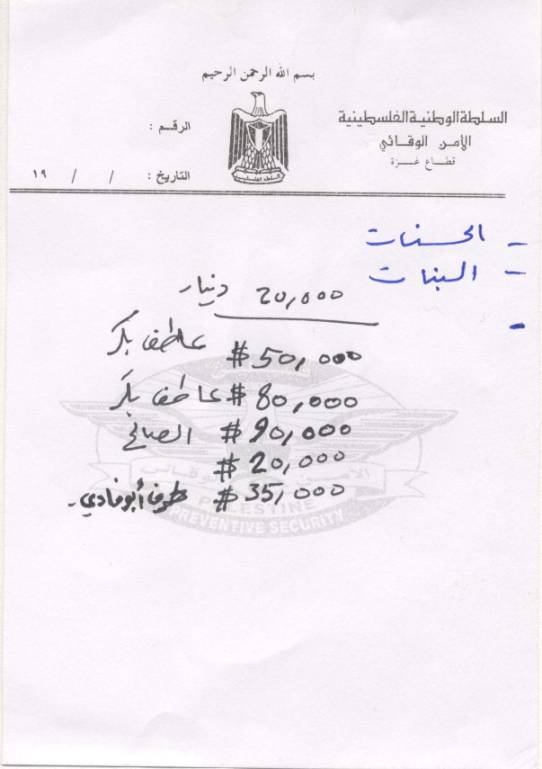 بسم الله الرحمن الرحيم
السلطة الوطنية الفلسطينية
الأمن الوقائي
قطاع غزة
الرقم :
التاريخ : / / ١٩
- الحسنات
- البنات
-
20,000 دينار
$50,000 عاطف بكر
$80,000 عاطف بكر
$90,000 الصالح
$20,000
$35,000 طرف أبو فادي.
الأمن الوقائي
PALESTINE
PREVENTIVE SECURITY